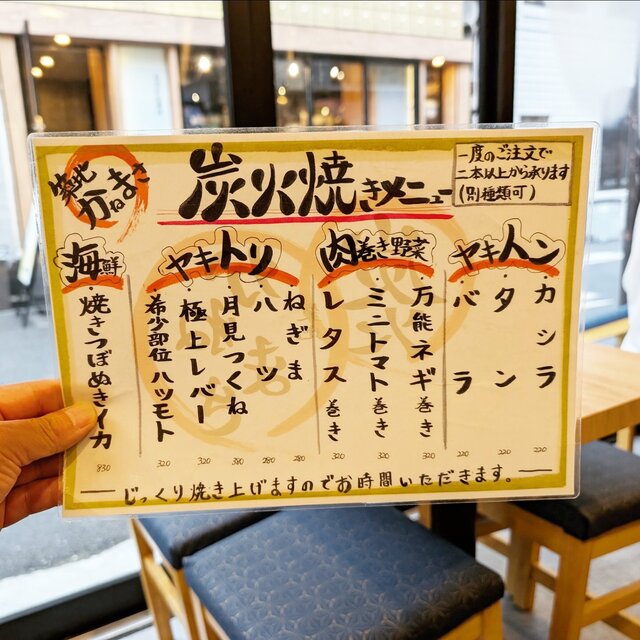 築地 かねまさ
炭火焼きメニュー
一度のご注文で
二本以上から承ります
(別種類可)
ヤキトン
カシラ 220
タン 220
バラ 220
肉巻き野菜
万能ネギ巻き 320
ミニトマト巻き 320
レタス巻き 320
ヤキトリ
ねぎま 280
ハツ 280
月見つくね 380
極上レバー 320
希少部位ハツモト 320
海鮮
焼きつぼぬきイカ 830
じっくり焼き上げますのでお時間いただきます。